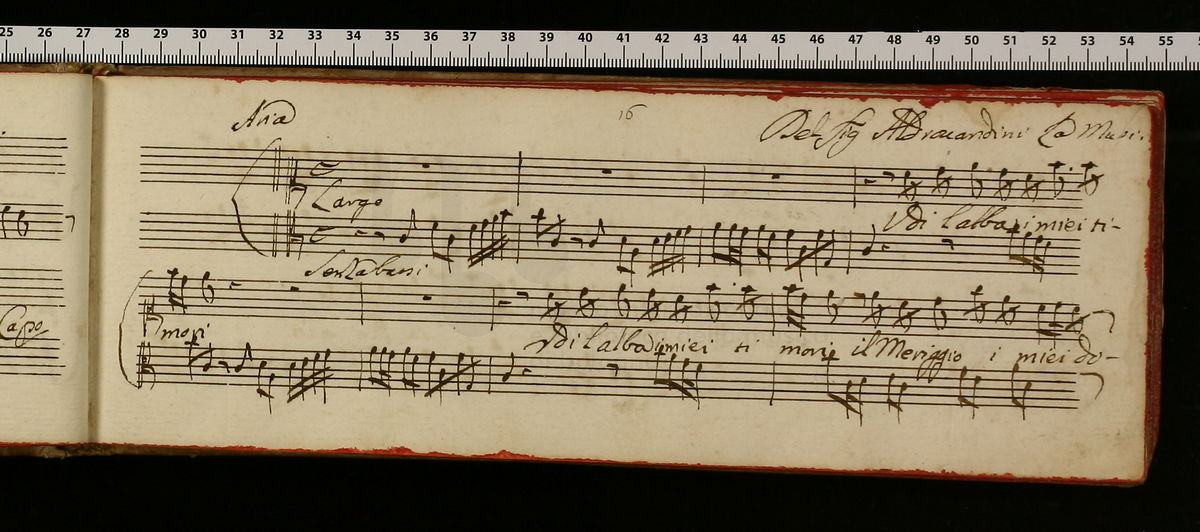 25 26 27 28 29 30 31 32 33 34 35 36 37 38 39 40 41 42 43 44 45 46 47 48 49 50 51 52 53 54 55
Aria 16 Del Sig Aldrovandini La Musi.
Largo
Udi l'alba i miei ti-
Senza bassi
Capo
mori Udi l'alba i miei ti mori e il Meriggio i miei do-